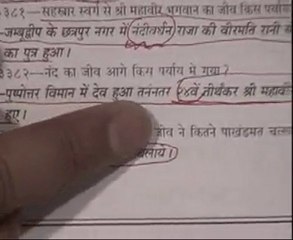 ३८१ – सहस्त्रार स्वर्ग से श्री महावीर भगवान का जीव किस पर्याय
– जम्बूद्वीप के छत्रपुर नगर में नंदीवर्धन राजा की वीरमति रानी
का पुत्र हुआ।
३८२ – नंद का जीव आगे किस पर्याय में गया?
– पुष्पोत्तर विमान में देव हुआ तनंनतर २४वें तीर्थंकर श्री
हुए।
जीव ने कितने पाखंडमत
चलाये।